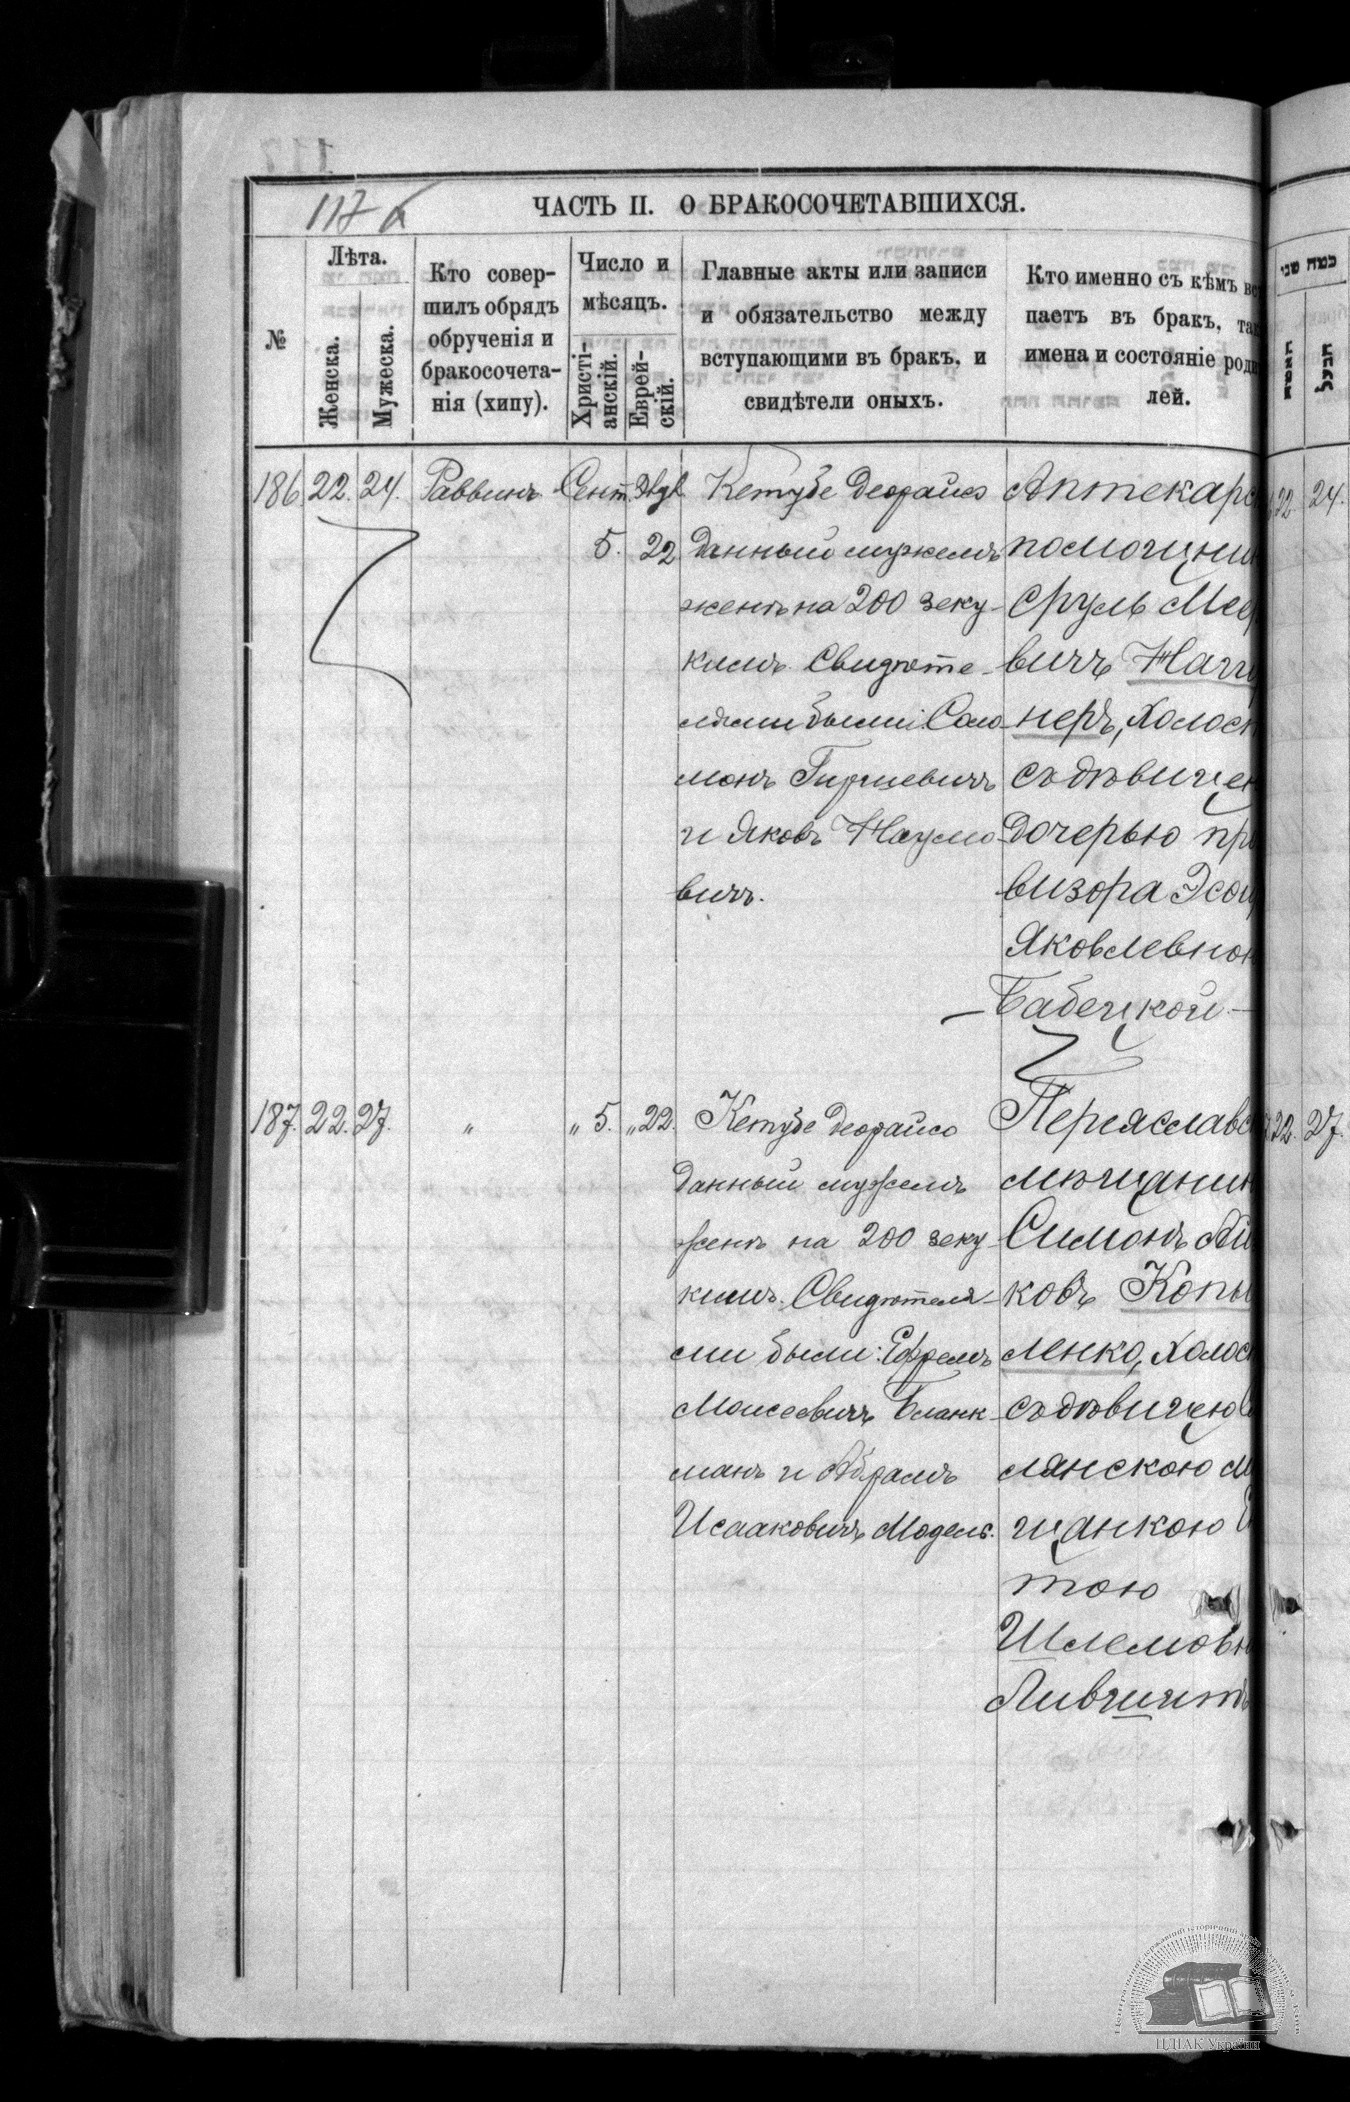 117 б
ЧАСТЬ II. О БРАКОСОЧЕТАВШИХСЯ.
№
Лѣта.
Женска.
Мужеска.
Кто совер-
шилъ обрядъ
обрученія и
бракосочета-
нія (хипу).
Число и
мѣсяцъ.
Христі-
анскій.
Еврей-
скій.
Главные акты или записи
и обязательство между
вступающими въ бракъ, и
свидѣтели оныхъ.
Кто именно съ кѣмъ вс
паетъ въ бракъ, так
имена и состояніе роди
лей.
186. 22. 24. Раввинъ Сент.
5. 22
Кетубе деорайсо
данный мужемъ
женѣ на 200 зеку-
кимъ. Свидѣте-
лями были: Соло-
монъ Гиршевичъ
и Яковъ Наумо-
вичъ.
Аптекарс
помощни
Сруль Мее
вичъ Наги
неръ, холос
съ дѣвицей
дочерью про
визора Эсѳи
Яковлевной
Бабецкой
187. 22. 27. „ „ 5. „ 22.
Кетубе деорайсо
данный мужемъ
женѣ на 200 зеку-
кимъ. Свидѣтеля-
ми были: Ефремъ
Моисеевичъ Бланк-
манъ и Абрамъ
Исааковичъ Модель.
Переяславс
мѣщанин
Симонъ
ковъ Копы
ленко, холос
съ дѣвицею
лянскою м
щанкою
тою
Шлемовн
Лившицъ
כמה שני
האשה
הבעל
22. 24.
22. 27.
ЦДІАК України